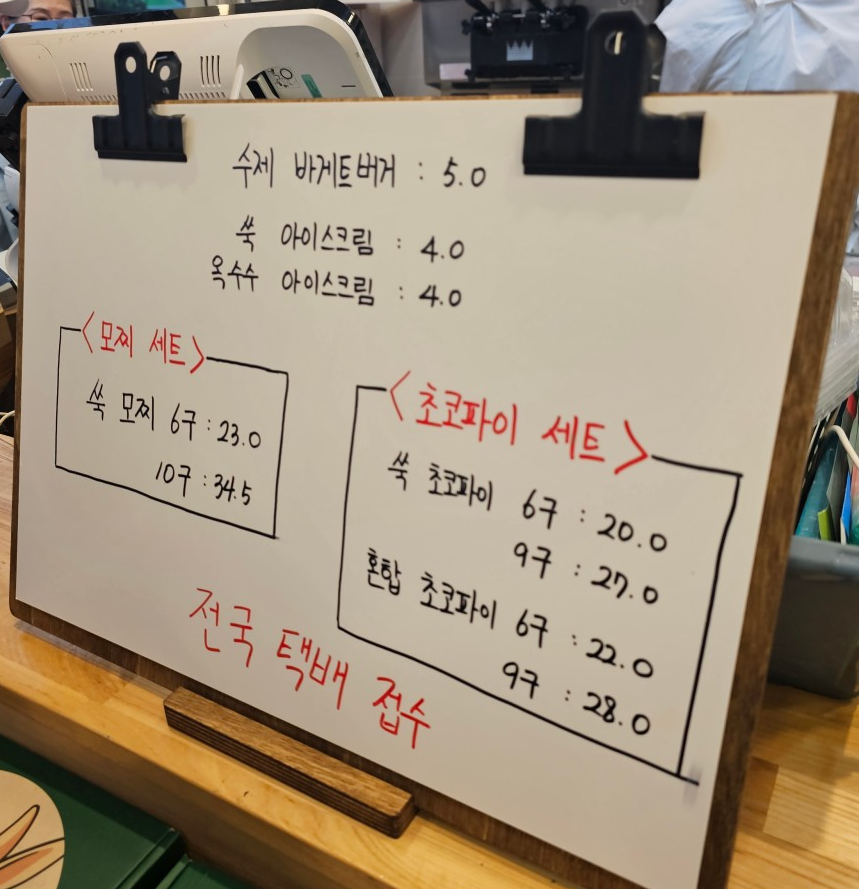 수제 바게트버거 : 5.0
쑥 아이스크림 : 4.0
옥수수 아이스크림 : 4.0
<모찌 세트>
쑥 모찌 6구 : 23.0
10구 : 34.5
<초코파이 세트>
쑥 초코파이 6구 : 20.0
9구 : 27.0
혼합 초코파이 6구 : 22.0
9구 : 28.0
전국 택배 접수